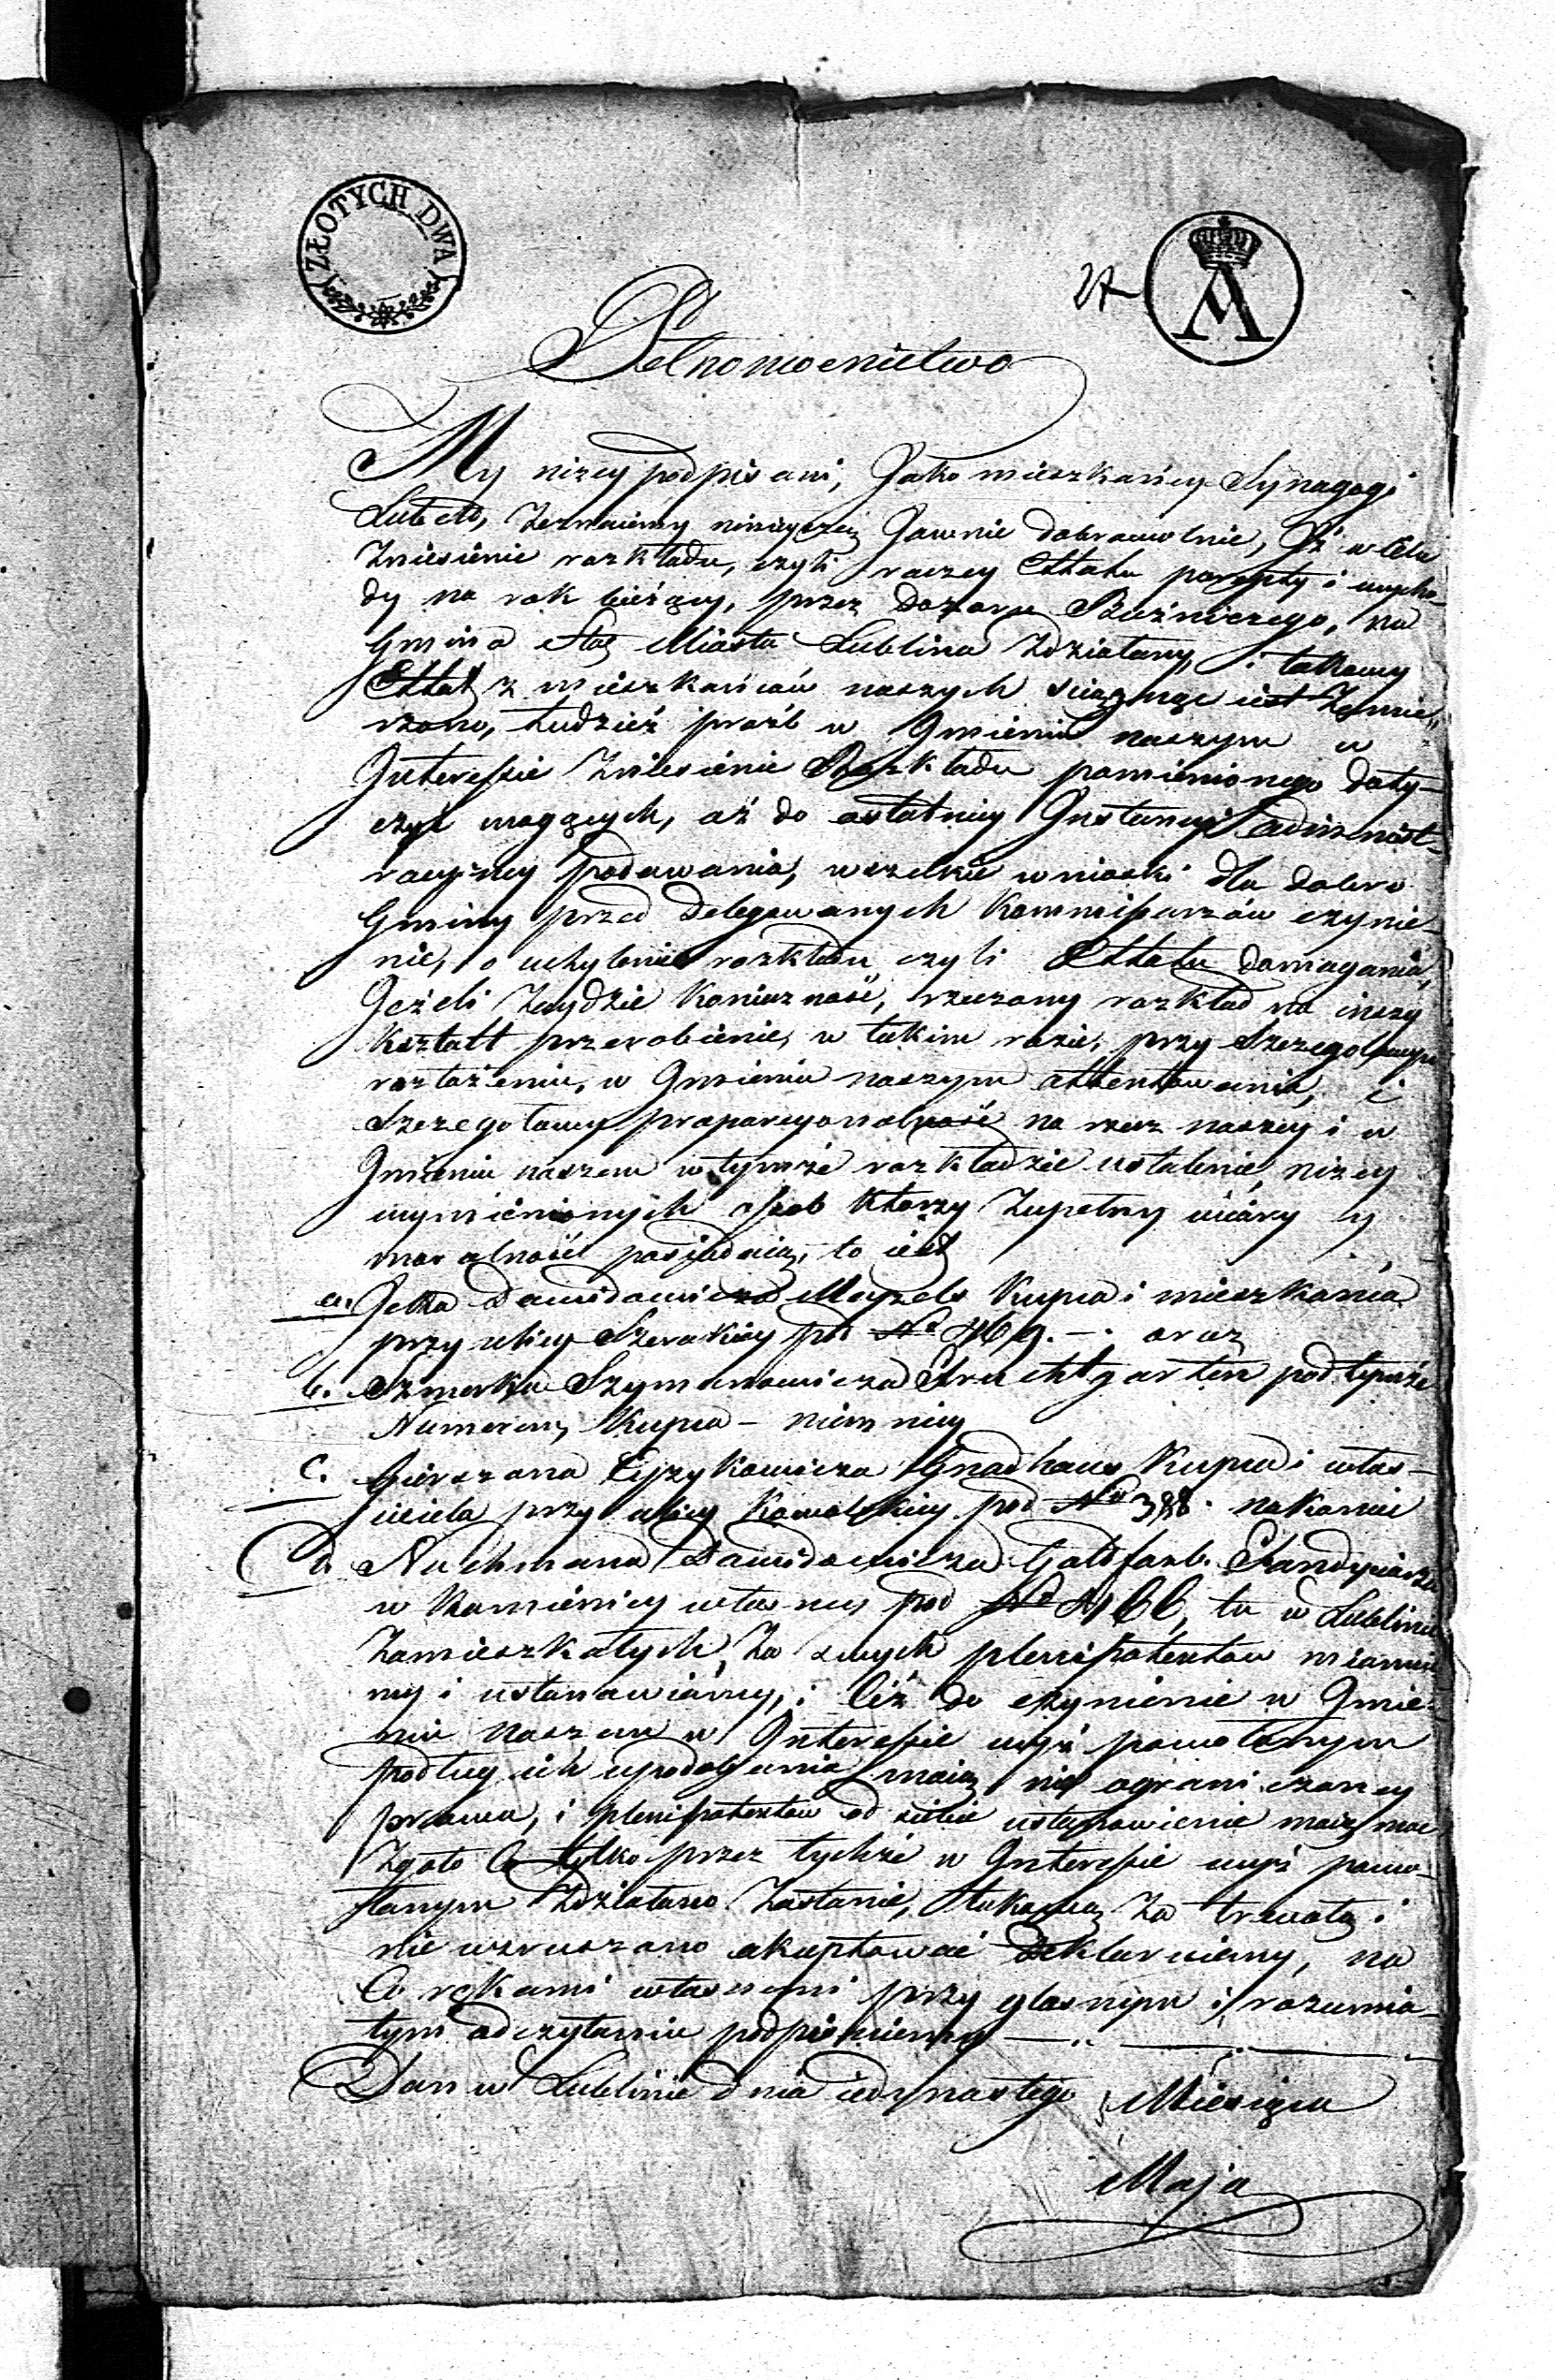 ZŁOTYCH DWA
A
Pełnomocnictwo
My niżey podpisani, Jako mieszkańcy Synagogi
Lubels, Zeznaiemy niniejszem Jawnie dobrowolnie, Iż w celu
Zniesienie rozkładu, czyli raczey Ettatu percepty i wycho-
dy na rok bieżący, przez Dozoru Bożniczego, na
Gmina Star Miasta Lublina Zdziałany, i takowy
Ettat z mieszkańców naszych ściągnąć iest Zamie-
rzono, tudzież proźb w Imieniu naszym w
Interessie Zniesienie Rozkładu pomienionego doty-
czyć mogących, aż do ostatniey Instancyi administ-
racyiney podawania, wszelkie wnioski dla dobro
Gminy przed Delegowanych Kommissarzów czynie-
nie, o uchylenie rozkładu czyli Ettatu domagania,
Jeżeli Zaydzie Konieczność, rzeczony rozkład na inszy
Kształt przerobienie, w takim razie, przy Szczegołowym
rozłożeniu, w Imieniu naszym attentowania, i
Szczegołowy proporcyonalność na rzecz naszey i w
Imieniu naszem w tymże rozkładzie ustalenie, niżey
wymienionych osob którzy Zupełny wiary y
moralność posiadaią, to iest
a. Jcka Dawidowicza Mayzels Kupca i mieszkańca
przy ulicy Szerokiey pod No 469. — oraz
b. Szmerka Szymanowicza Fruchtgarten pod tymże
Numerem, Kupca - niemniey
c. Gierszona Eyzykowicza Gnadhaus Kupca i włas-
iciela przy ulicy Kowalskiey pod No 388. nakoniec
d. Nuchmana Dawidowicza Goldfarb. Handlarza
w Kamienicy własney pod No 466, tu w Lublinie
Zamieszkałych, Za swych plenipotentow mianuie-
my i ustanawiamy, i Iż do czynienie w Imie-
niu naszem w Interessie wyż powołanym
podług ich upodobania maią nie ograniczoney
prawa, i plenipotentow od siebie ustanowienie maią moc
Zgoła Co tylko przez tychże w Interessie wyż powo-
łanym Zdziałano Zostanie, takową Za trwałą i
nie wzruszono akceptować deklaruiemy, na
Co rękami własnemi przy głosnym i rozumia-
tym odczytaniu podpisuiemy —
Dan w Lublinie dnia iedynastego Miesiąca
Maja